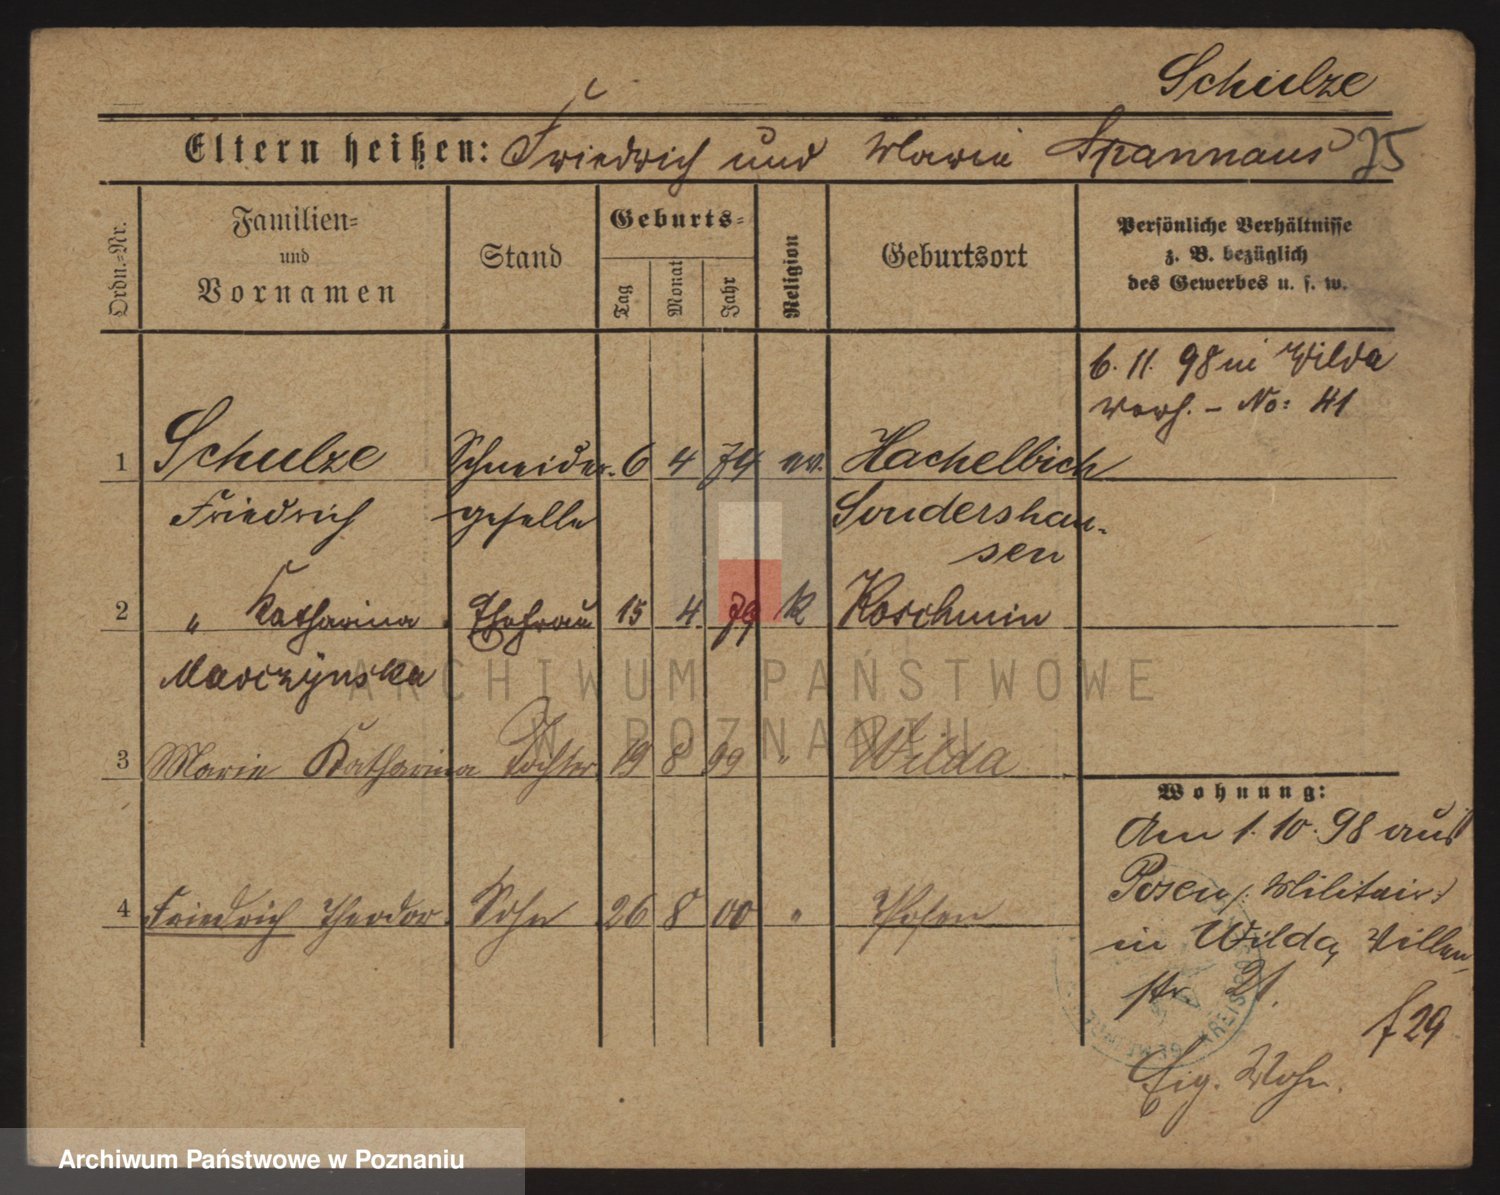 Schulze
Eltern heißen: Friedrich und Marie Spannaus 75
Ordn.-Nr.
Familien-
und
Vornamen
Stand
Geburts-
Tag
Monat
Jahr
Religion
Geburtsort
Persönliche Verhältnisse
z. B. bezüglich
des Gewerbes u. s. w.
6. 11. 98 in Wilda
verh. - No: 41
1 Schulze Schneider- 6 4 74 ev. Hachelbich
Friedrich geselle Sondershau-
sen
2 " Katharina Ehefrau 15 4 79 k Koschmin
Marczynska
3 Marie Katharina Tochter 19 8 99 " Wilda
Wohnung:
Am 1. 10. 98 aus
Posen /: Militair :/
in Wilda, Villen-
str. 21.
f 29
Eig. Wohn.
4 Friedrich Theodor Sohn 26 8 00 " Posen
KREIS
ARCHIWUM PAŃSTWOWE
W POZNANIU
Archiwum Państwowe w Poznaniu